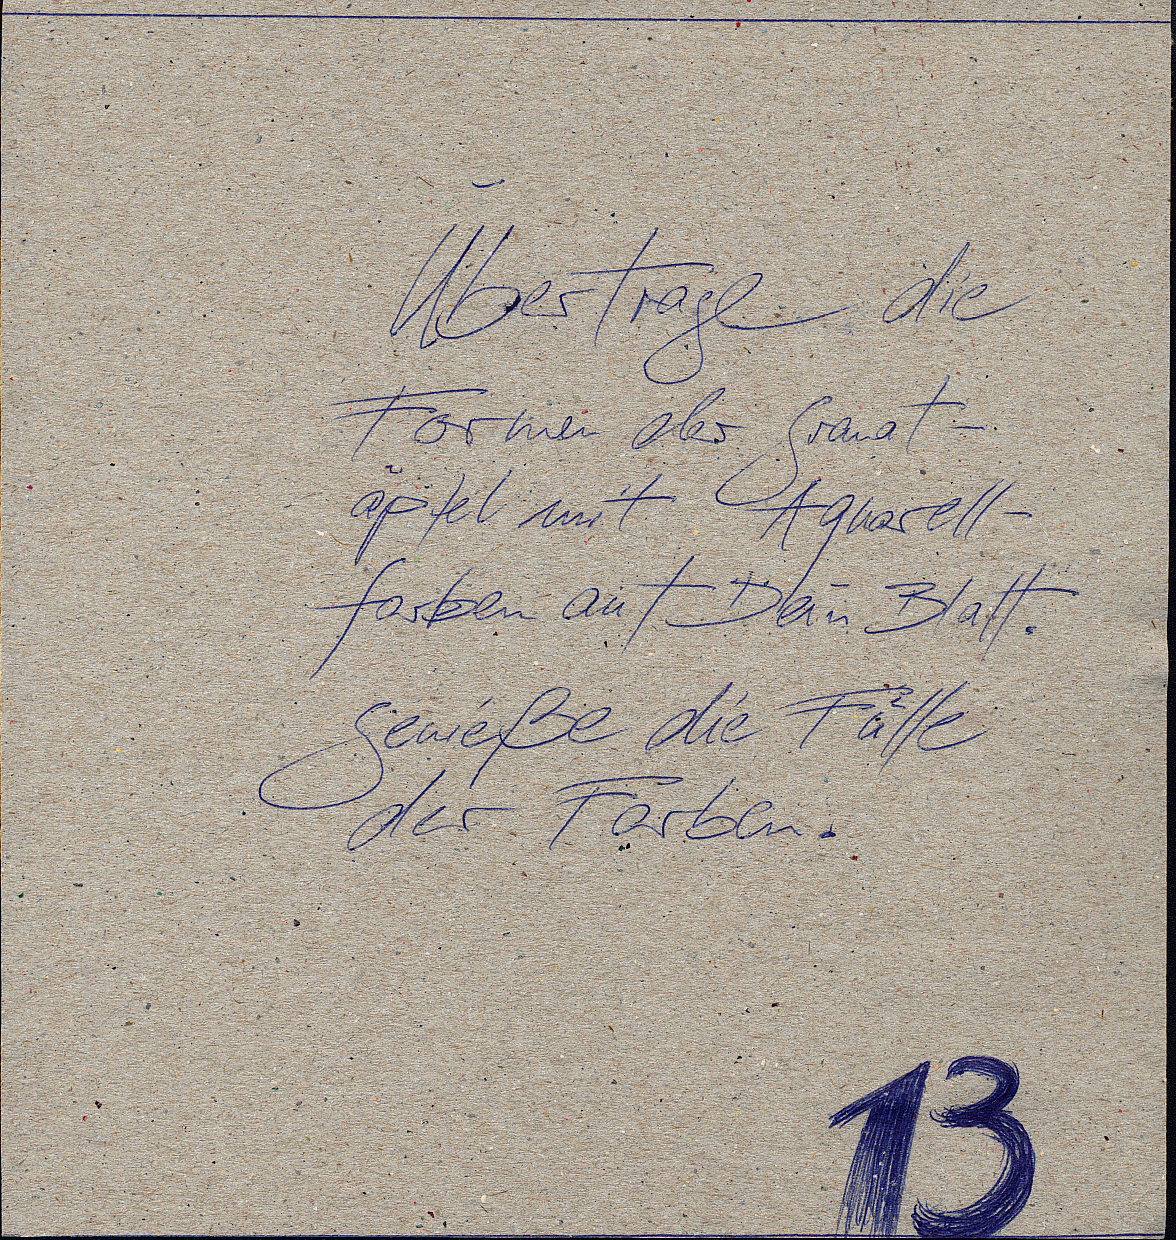 Übertrage die
Formen der Granat-
äpfel mit Aquarell-
farben auf Dein Blatt.
Genieße die Fülle
der Farben.
13